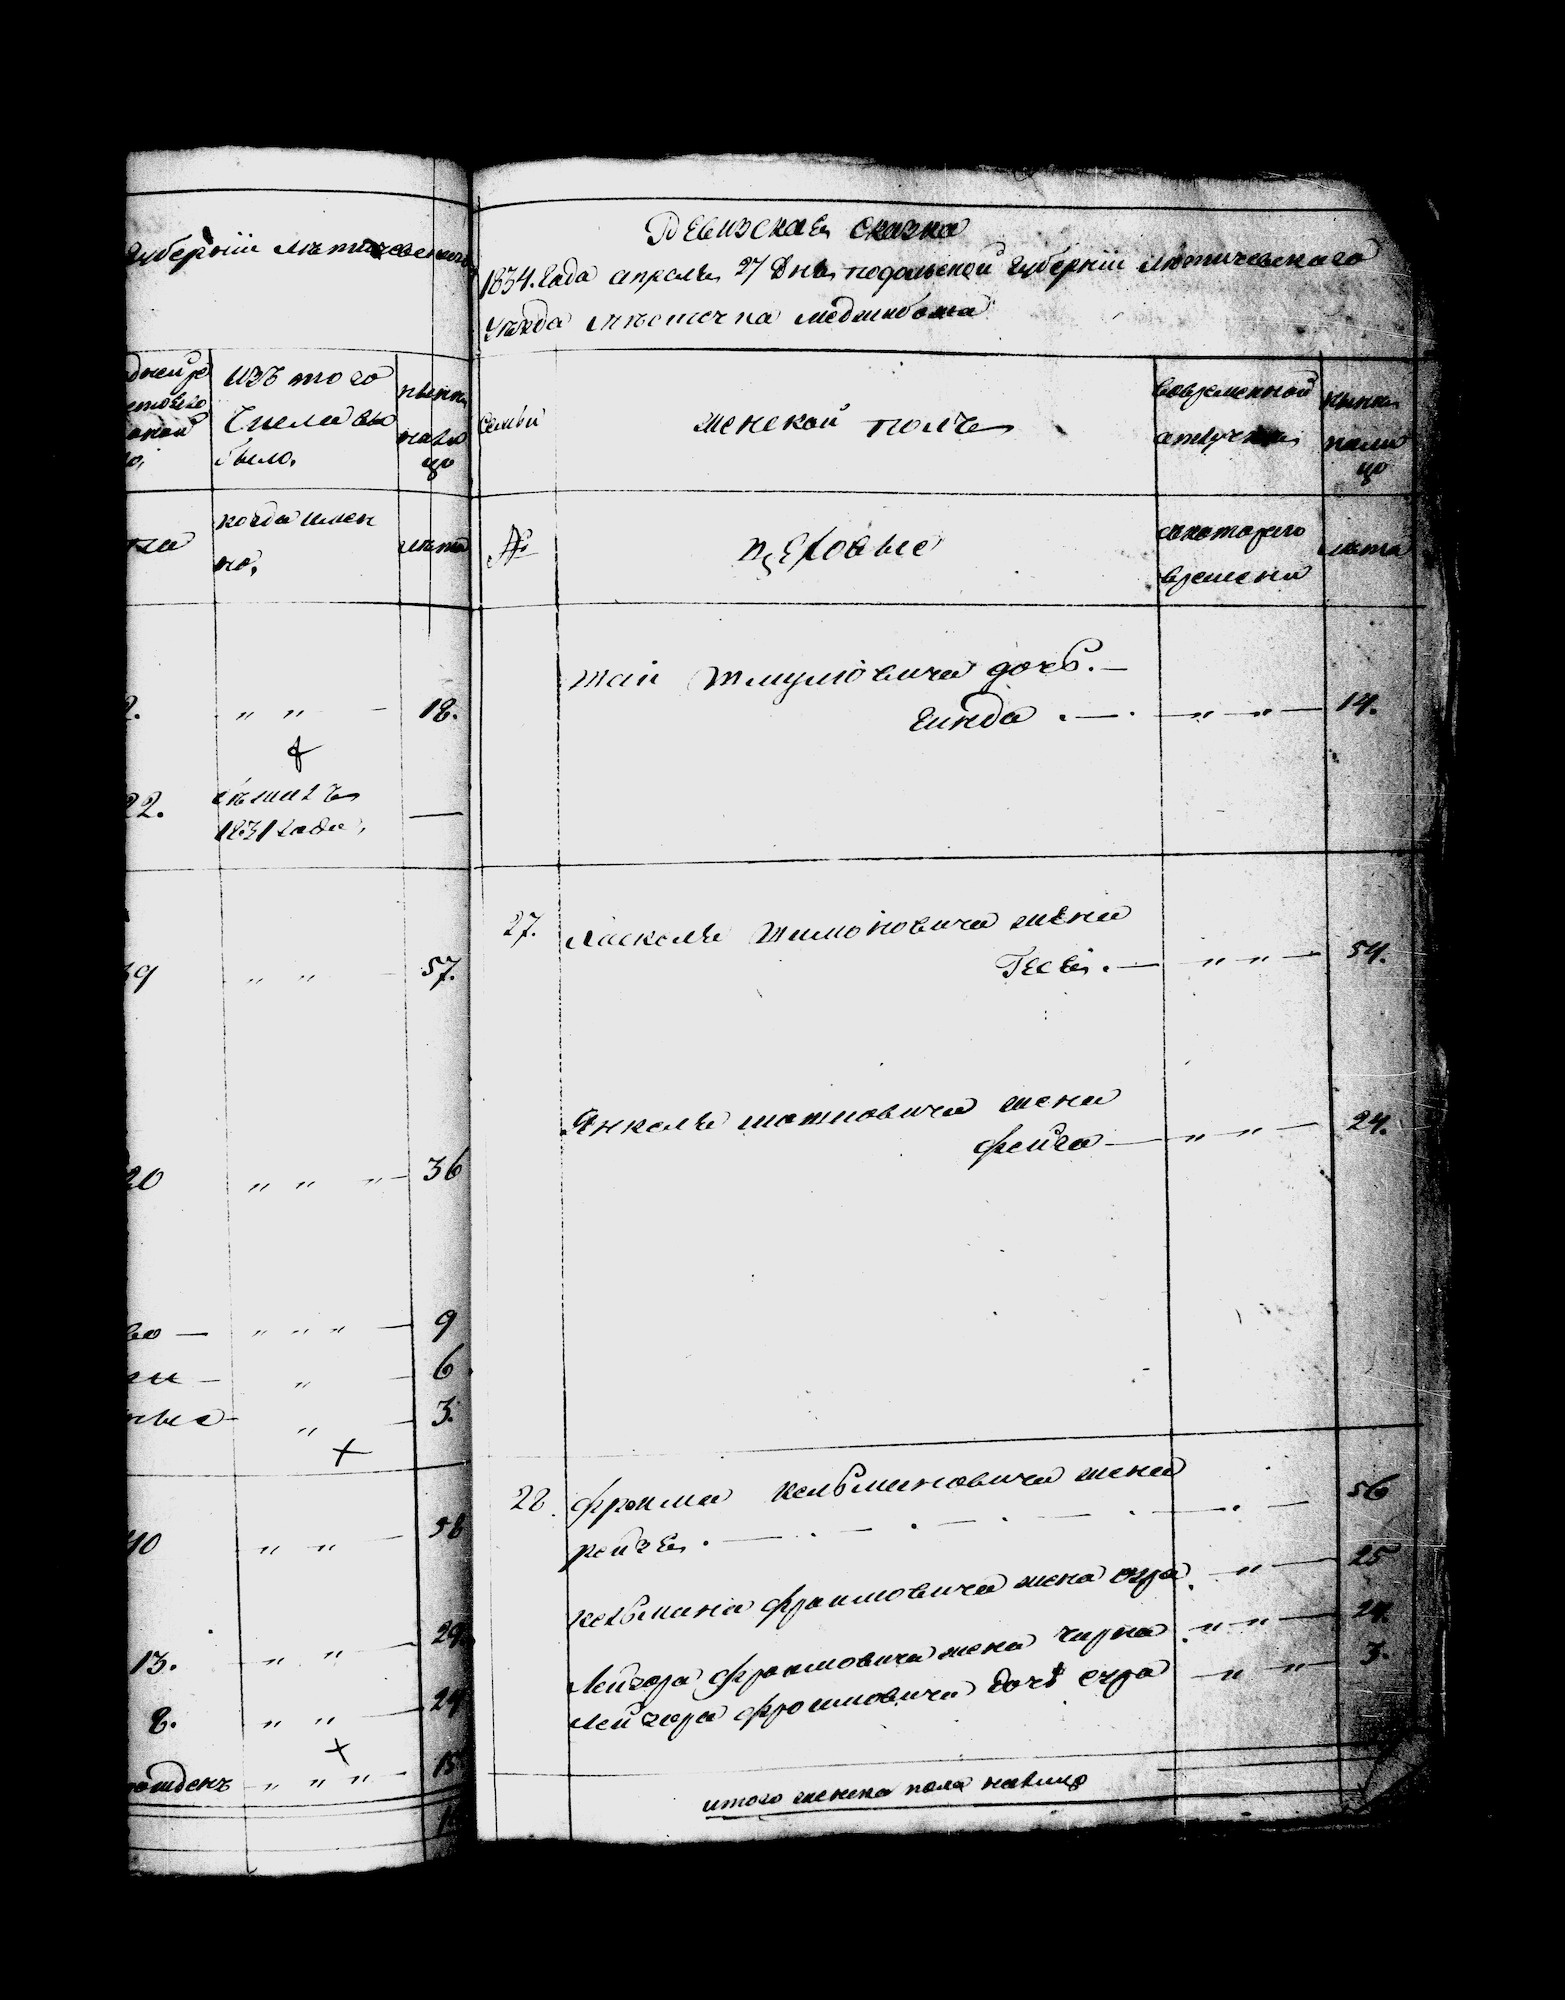 губернiи Лѣтичевскаго
изъ того
числа вы
было.
когда имен
но,
лѣта
" " — 18.
22.
1831 года, —
39 " " 57.
20 " " " — 36
" " " — 9
" — 6
" — 3.
40 " " — 58
13. " " — 29.
8. " " — 24
рожденъ — " " " — 15
Ревизская сказка
1834. года апреля 27 дня подольской губернiи Лѣтичевского
уѣзда мѣстечка медзибожа
семьи
женской полъ
вовременной
отлучки
нынѣ
нали
цо
№
съкоторого
времени
лѣта
Шмулiовича дочь. —
Гинда . — . — " — " — 14.
27. Хаскеля Шимоновича жена
Гесся . — " — " — 54.
Янкеля мотiовича жена
фейга — " — " — 24.
28. фроима кельмановича жена
рейзя . — . — . — . — . — 56
кельмана фроимовича жена сура . " — 25
Лейзора фроимовича жена чарна . " — " — 24.
Лейзора фроимовича дочь сура — " — " — 3.
итого женска пола налицо